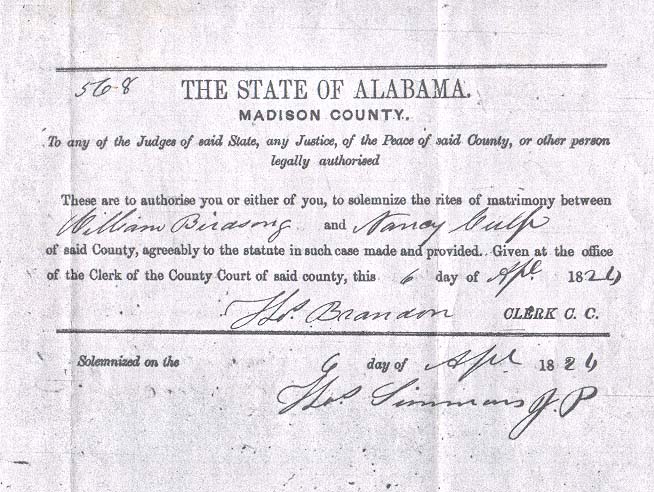 568
THE STATE OF ALABAMA.
MADISON COUNTY.
To any of the Judges of said State, any Justice, of the Peace of said County, or other person
legally authorised
These are to authorise you or either of you, to solemnize the rites of matrimony between
William Birdsong and Nancy Culp
of said County, agreeably to the statute in such case made and provided. Given at the office
of the Clerk of the County Court of said county, this 6 day of Apl. 182
Thos. Brandon CLERK C. C.
Solemnized on the 6 day of Apl 182
Thos Simmons J. P